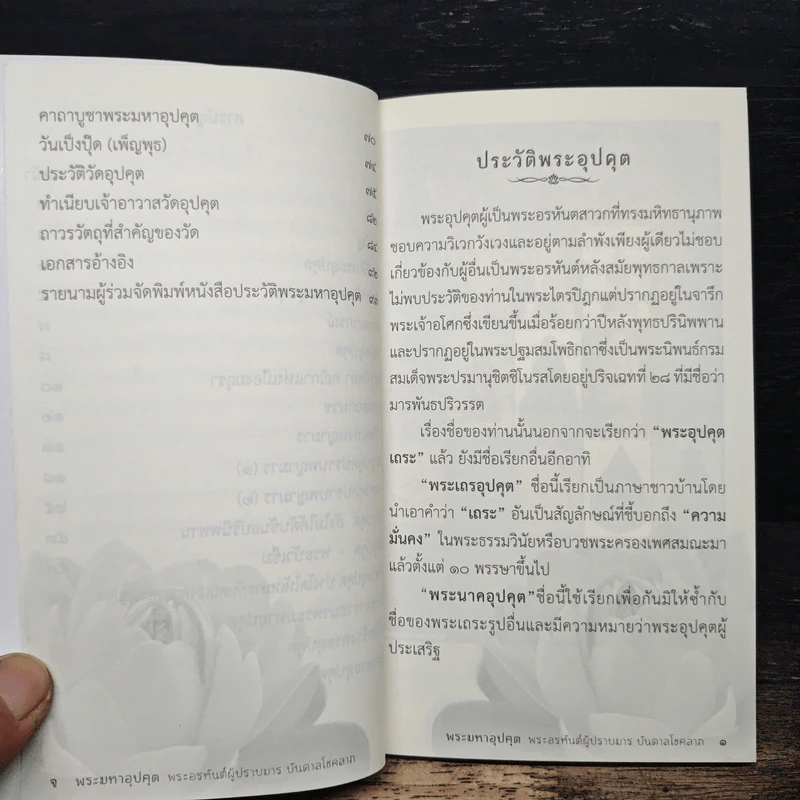 คาถาบูชาพระมหาอุปคุต ๗๐
วันเป็งปุ๊ด (เพ็ญพุธ) ๗๔
ประวัติวัดอุปคุต ๗๕
ทำเนียบเจ้าอาวาสวัดอุปคุต ๘๒
ถาวรวัตถุที่สำคัญของวัด ๘๔
เอกสารอ้างอิง
รายนามผู้ร่วมจัดพิมพ์หนังสือประวัติพระมหาอุปคุต ๙๓
จ พระมหาอุปคุต พระอรหันต์ผู้ปราบมาร บันดาลโชคลาภ
ประวัติพระอุปคุต
พระอุปคุตผู้เป็นพระอรหันตสาวกที่ทรงมหิทธานุภาพ
ชอบความวิเวกวังเวงและอยู่ตามลำพังเพียงผู้เดียวไม่ชอบ
เกี่ยวข้องกับผู้อื่นเป็นพระอรหันต์หลังสมัยพุทธกาลเพราะ
ไม่พบประวัติของท่านในพระไตรปิฎกแต่ปรากฏอยู่ในจารึก
พระเจ้าอโศกซึ่งเขียนขึ้นเมื่อร้อยกว่าปีหลังพุทธปรินิพพาน
และปรากฏอยู่ในพระปฐมสมโพธิกถาซึ่งเป็นพระนิพนธ์กรม
สมเด็จพระปรมานุชิตชิโนรสโดยอยู่ปริจเฉทที่ ๒๘ ที่มีชื่อว่า
มารพันธปริวรรต
เรื่องชื่อของท่านนั้นนอกจากจะเรียกว่า “พระอุปคุต
เถระ” แล้ว ยังมีชื่อเรียกอื่นอีกอาทิ
“พระเถรอุปคุต” ชื่อนี้เรียกเป็นภาษาชาวบ้านโดย
นำเอาคำว่า “เถระ” อันเป็นสัญลักษณ์ที่ชี้บอกถึง “ความ
มั่นคง” ในพระธรรมวินัยหรือบวชพระครองเพศสมณะมา
แล้วตั้งแต่ ๑๐ พรรษาขึ้นไป
“พระนาคอุปคุต”ชื่อนี้ใช้เรียกเพื่อกันมิให้ซ้ำกับ
ชื่อของพระเถระรูปอื่นและมีความหมายว่าพระอุปคุตผู้
ประเสริฐ
พระมหาอุปคุต พระอรหันต์ผู้ปราบมาร บันดาลโชคลาภ ๑